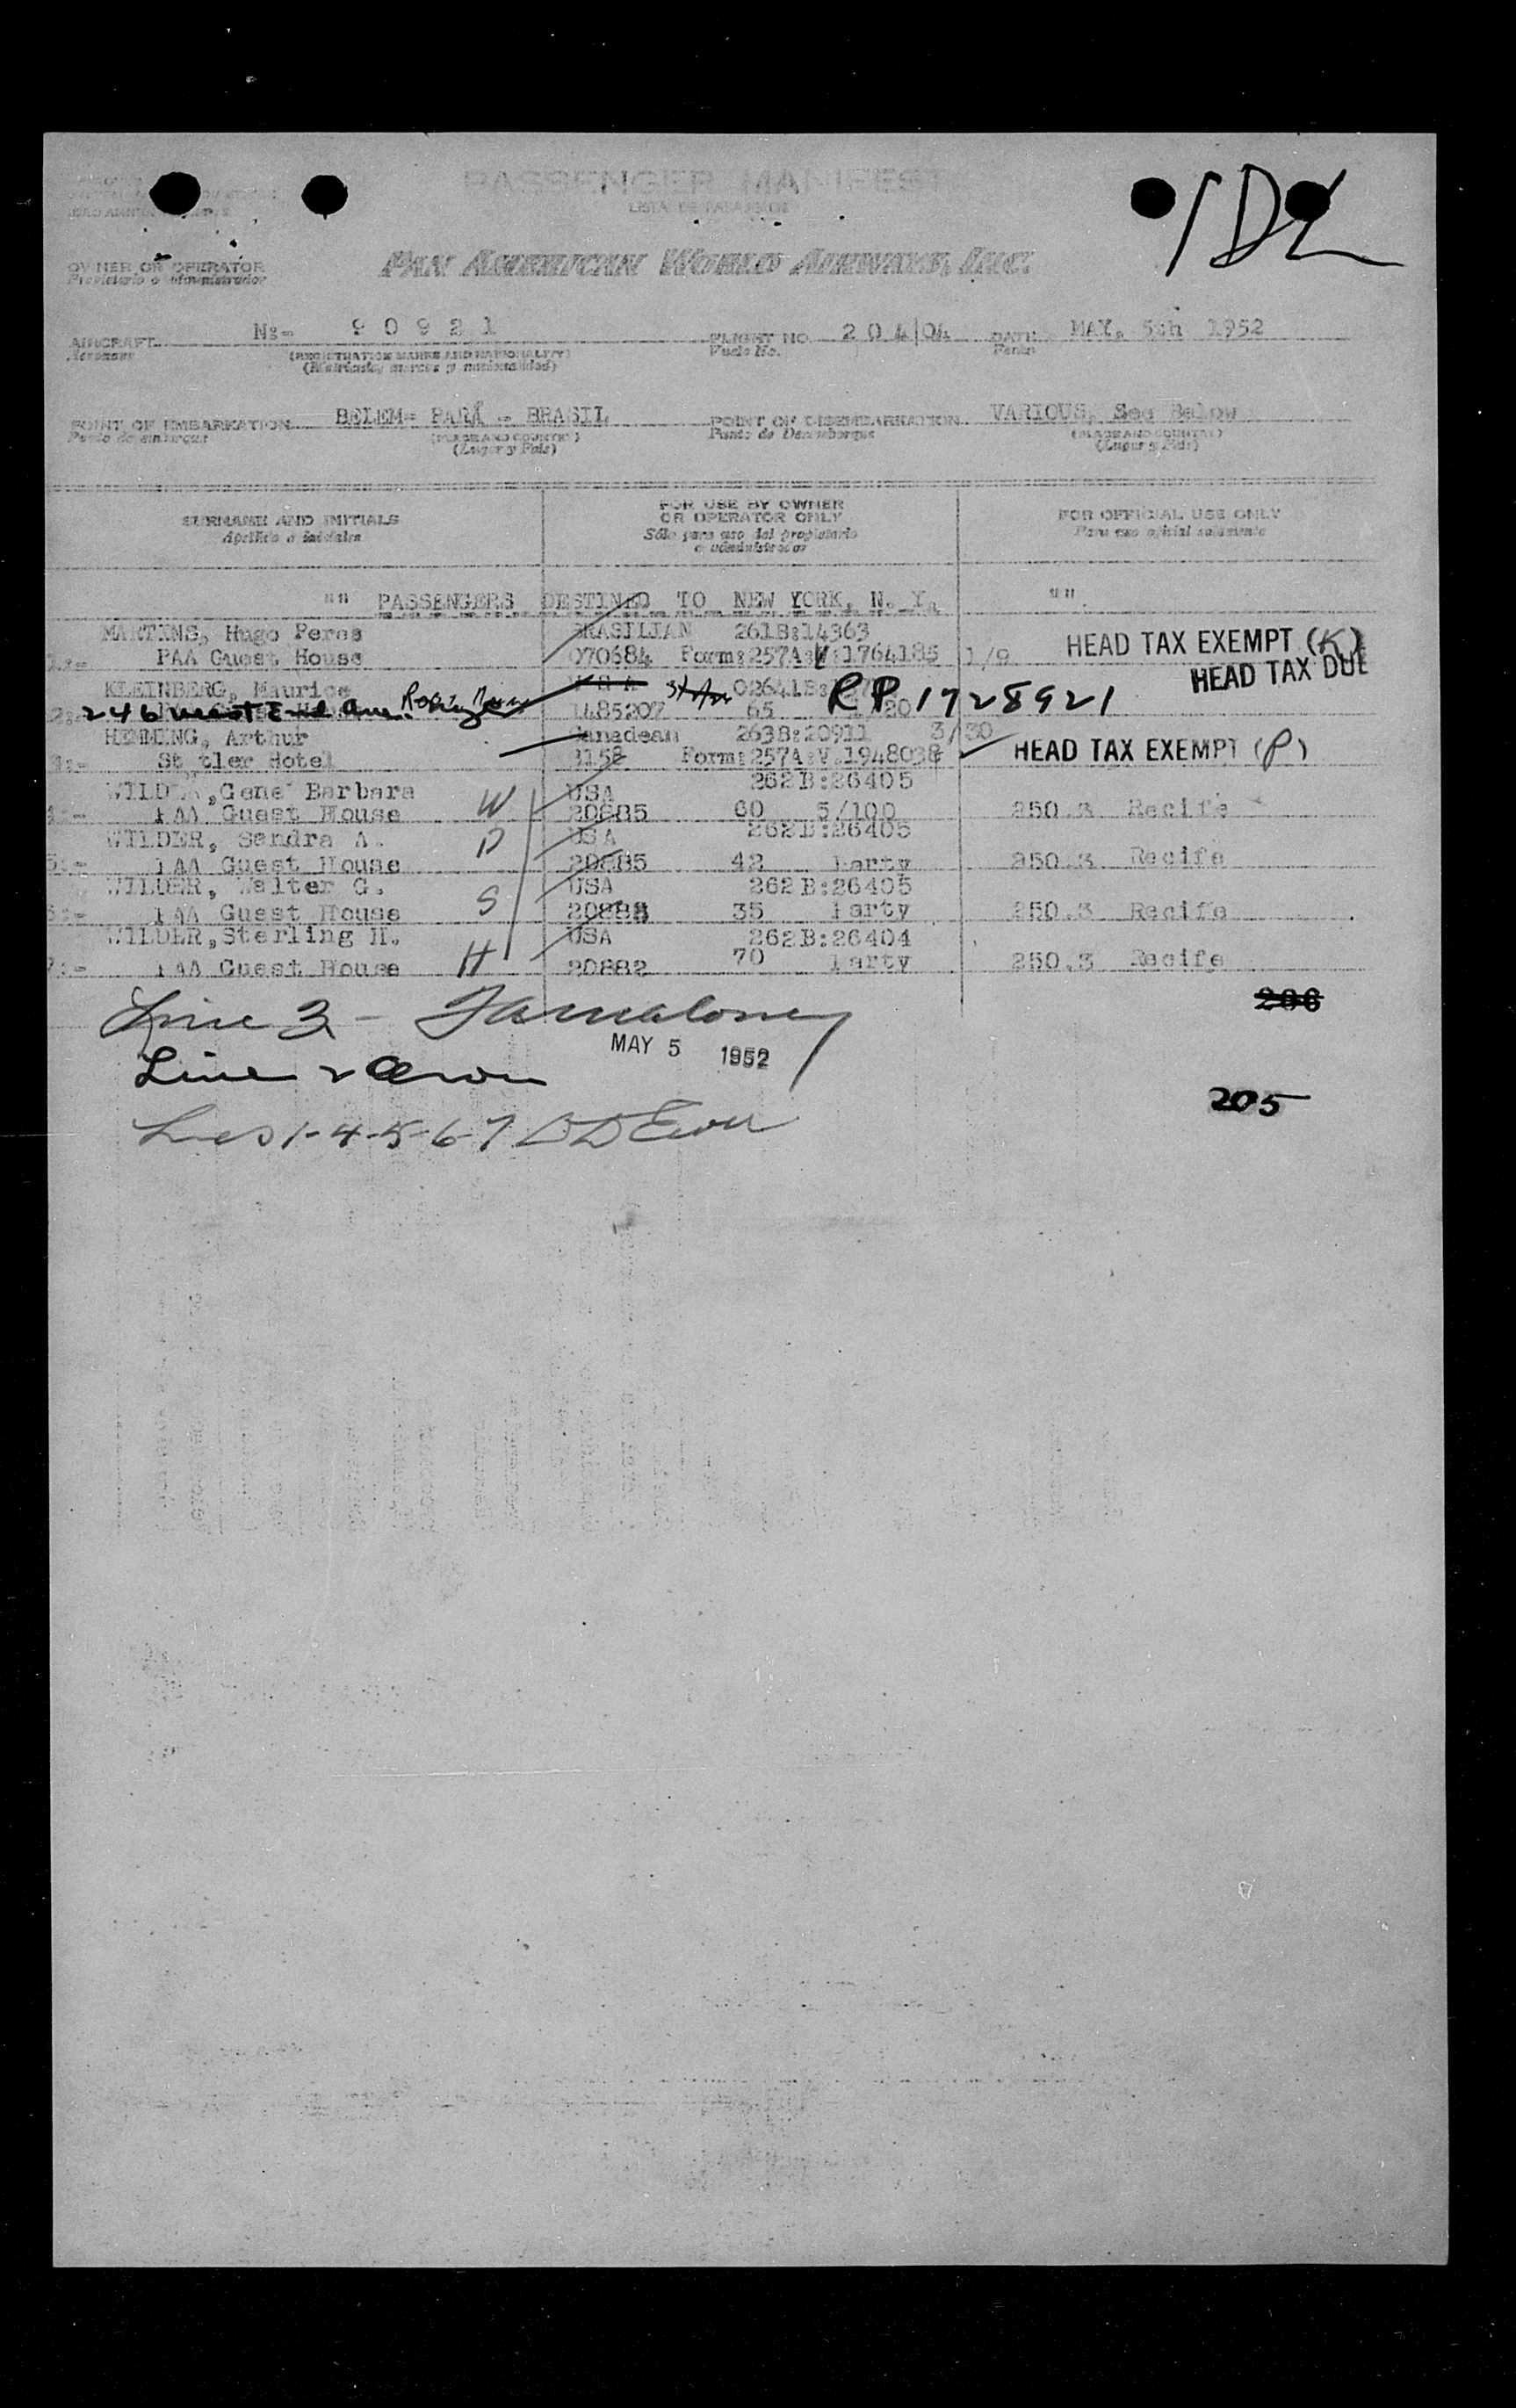 PASSENGER MANIFEST
LISTA DE PASAJEROS
1DL
OWNER OR OPERATOR PAN AMERICAN WORLD AIRWAYS, INC.
Propietario o administrador
AIRCRAFT N:- 9 0 9 2 1 FLIGHT NO. 2 0 4/04 DATE MAY, 5th 1952
Aeronave (REGISTRATION MARKS AND NATIONALITY) Vuelo No. Fecha
(Matrícula, marcas y nacionalidad)
POINT OF EMBARKATION BELEM- PARÁ - BRASIL POINT OF DISEMBARKATION VARIOUS, See Below
Punto de embarque (PLACE AND COUNTRY) Punto de Desembarque (PLACE AND COUNTRY)
(Lugar y País) (Lugar y País)
SURNAME AND INITIALS FOR USE BY OWNER OR OPERATOR ONLY FOR OFFICIAL USE ONLY
Apellido e iniciales Sólo para uso del propietario o administrador Para uso oficial solamente
"" PASSENGERS DESTINED TO NEW YORK, N. Y. "".
MARTINS, Hugo Peres BRASILIAN 261B:14363
1:- PAA Guest House 070684 Form:257A:V:1764185 1/9 HEAD TAX EXEMPT (K)
HEAD TAX DUE
KLEINBERG, Maurice
2:- 246 West End Ave. 1485207 65 20 RP 1728921
HEMMING, Arthur Canadean 263B:20911 3/30
3:- St tler Hotel 3158 Form:257A:V.1948038 HEAD TAX EXEMPT (P)
WILDER, Gene Barbara W USA 262B:26405
4:- PAA Guest House 20885 60 5/100 250.3 Recife
WILDER, Sandra A. D USA 262B:26405
5:- PAA Guest House 20885 42 Party 250.3 Recife
WILDER, Walter G. S USA 262B:26405
6:- PAA Guest House 20883 35 Party 250.3 Recife
WILDER, Sterling H. USA 262B:26404
7:- PAA Guest House H 20882 70 Party 250.3 Recife
206
Line 3 - Famaloney
MAY 5 1952
Line 2
205
1-4-5-6-7